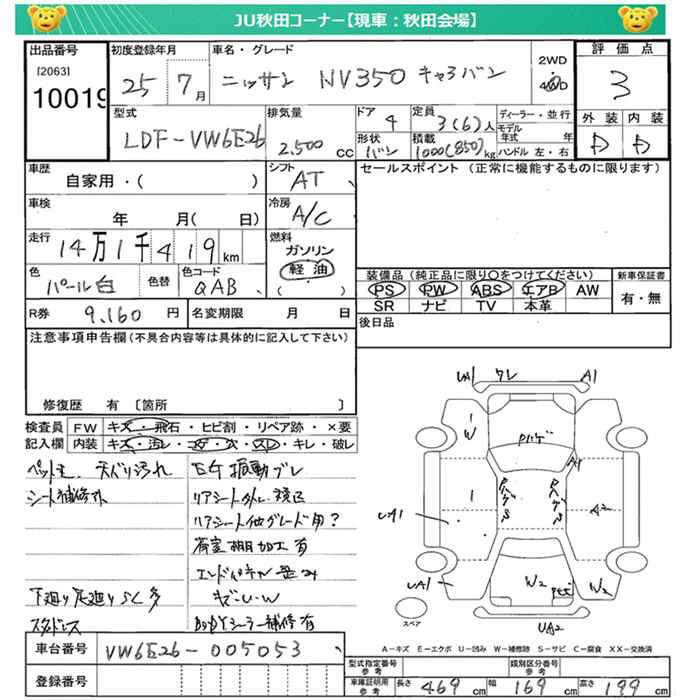 JU秋田コーナー【現車：秋田会場】
出品番号
[2063]
10019
初度登録年月
25 7月
車名・グレード
ニッサン NV350 キャラバン
2WD
4WD
評価点
3
外装 内装
D D
型式
LDF-VW6E26
排気量
2,500 cc
ドア
4
定員
3(6)人
形状
バン
積載
1000(850)kg
ディーラー・並行
モデル年式 年
ハンドル 左・右
車歴
自家用・( )
シフト
AT
セールスポイント (正常に機能するものに限ります)
車検
年 月( 日)
冷房
A/C
走行
14万1千419km
燃料
ガソリン
軽油
( )
色
パール白
色替
色コード
QAB
装備品(純正品に限り○をつけてください)
PS PW ABS エアB AW
SR ナビ TV 本革
新車保証書
有・無
R券
9,160 円
名変期限 月 日
後日品
注意事項申告欄(不具合内容等は具体的に記入して下さい)
修復歴 有 〔箇所 〕
検査員記入欄
FW キズ・飛石・ヒビ割・リペア跡・×要
内装 キズ・汚レ・コゲ・穴・スレ・キレ・破レ
天バリ汚れ
シート補修才
E/G 振動ブレ
リアシート他グレード用?
荷室棚加工有
下廻り足廻りSC多
スタドレス
キズ・U・W
BgBYシーラー補修有
UA1 ワレ A1
W
A1
UA1
A2
UA1
W2
W2
UA2
スペア
A－キズ E－エクボ U－凹み W－補修跡 S－サビ C－腐食 XX－交換済
車台番号
VW6E26-005053
登録番号
型式指定番号
参考
類別区分番号
参考
車庫証明用
参考
長さ 469 cm 幅 169 cm 高さ 199 cm